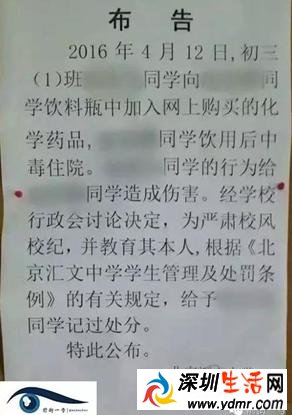 布 告
2016 年 4 月 12 日,初三
(1)班 同学向 同
学饮料瓶中加入网上购买的化
学药品, 同学饮用后中
毒住院。 同学的行为给
同学造成伤害。经学校
行政会讨论决定，为严肃校风
校纪，并教育其本人，根据《北
京汇文中学学生管理及处罚条
例》的有关规定，给予
同学记过处分。
特此公布。
深圳生活网
www.ydmr.com